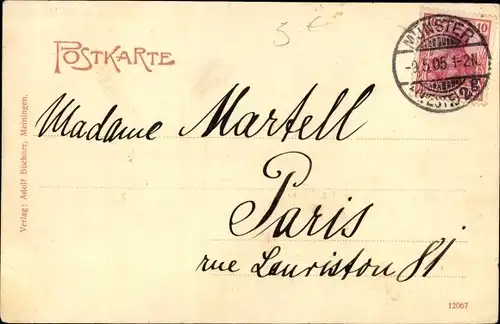 3 €
POSTKARTE
10
MÜNSTER
5.05.1-2N.
(WESTF.)
Madame Martell
Paris
rue Lauriston 81
Verlag: Adolf Büchner, Meiningen.
12067